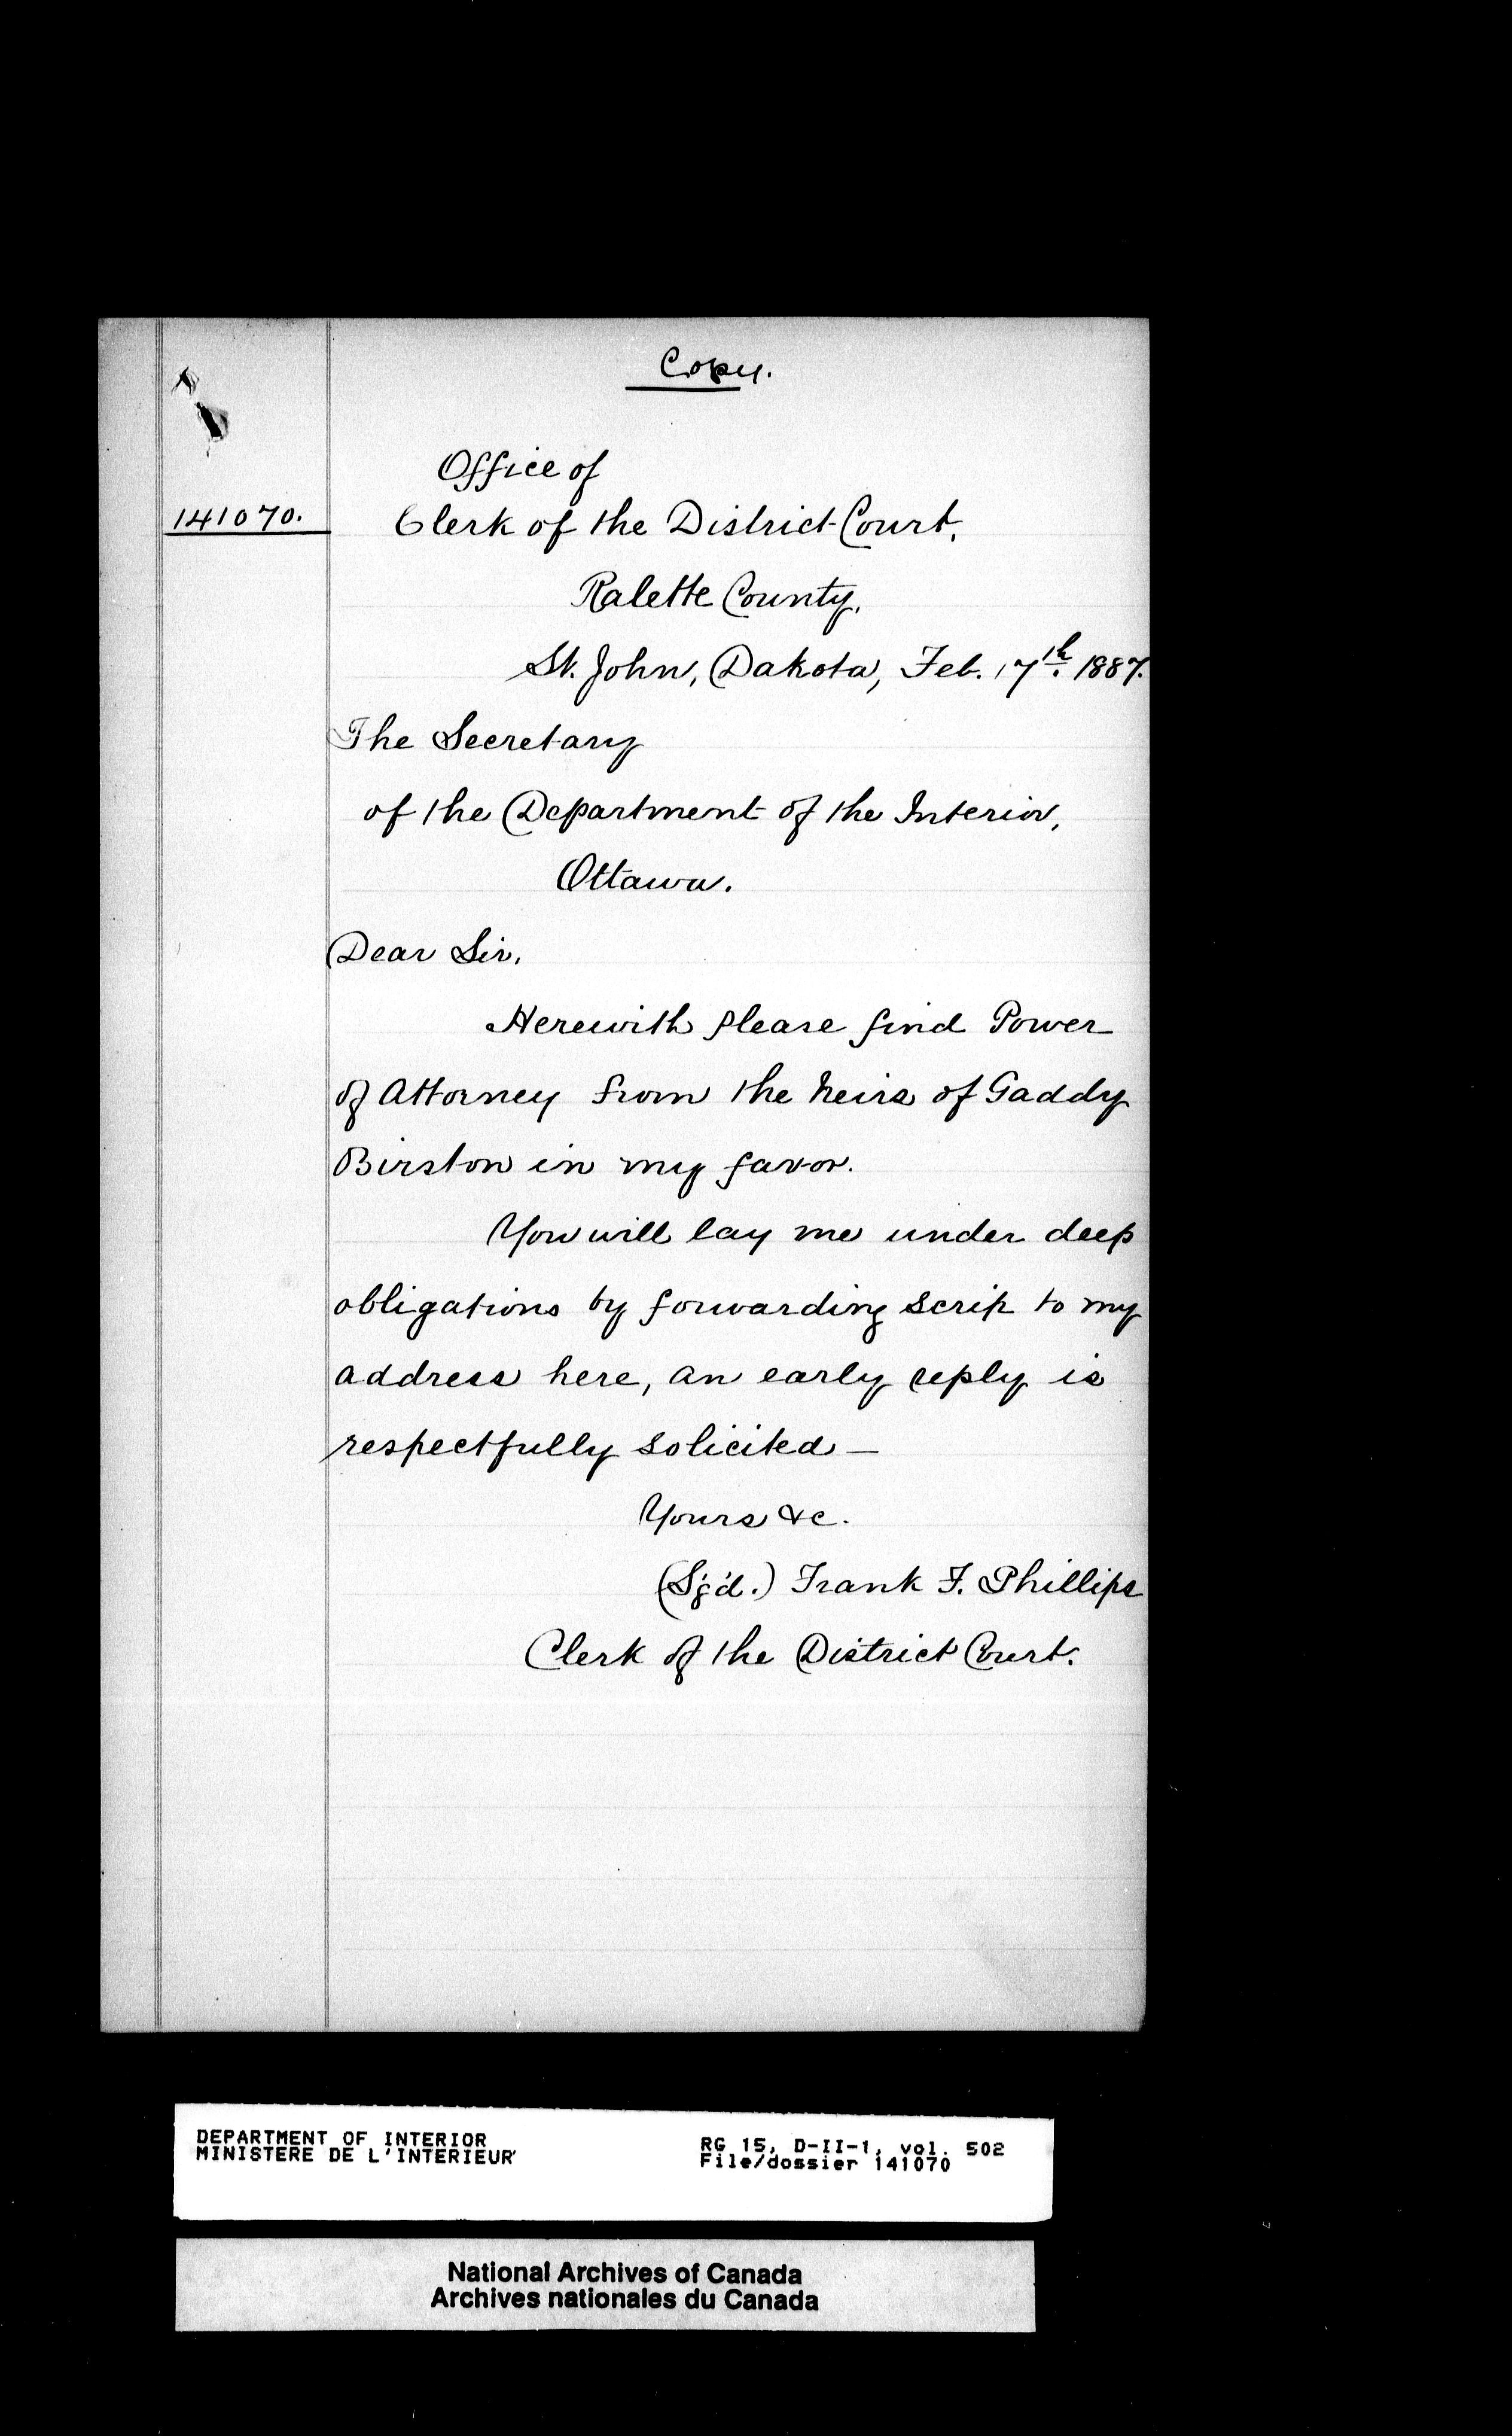 Copy.
Office of
141070.
Clerk of the District Court,
Ralette County,
St. John, Dakota, Feb. 17th. 1887.
The Secretary
of the Department of the Interior,
Ottawa.
Dear Sir,
Herewith please find Power
of Attorney from the heirs of Gaddy
Birston in my favor.
You will lay me under deep
obligations by forwarding scrip to my
address here, an early reply is
respectfully solicited —
Yours &c.
(Sg'd.) Frank F. Phillips
Clerk of the District Court.
DEPARTMENT OF INTERIOR
MINISTERE DE L'INTERIEUR
RG 15, D-II-1, vol. 502
File/dossier 141070
National Archives of Canada
Archives nationales du Canada